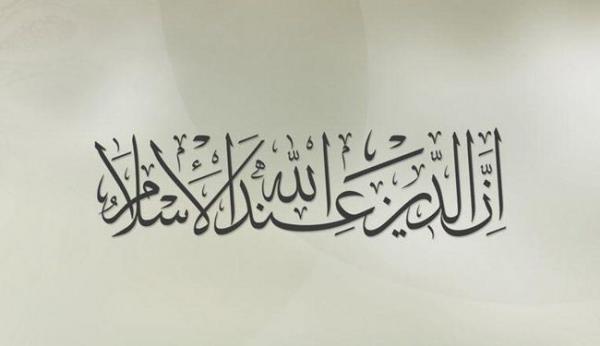 إِنَّ الدِّينَ عِندَ اللَّهِ الْإِسْلَامُ